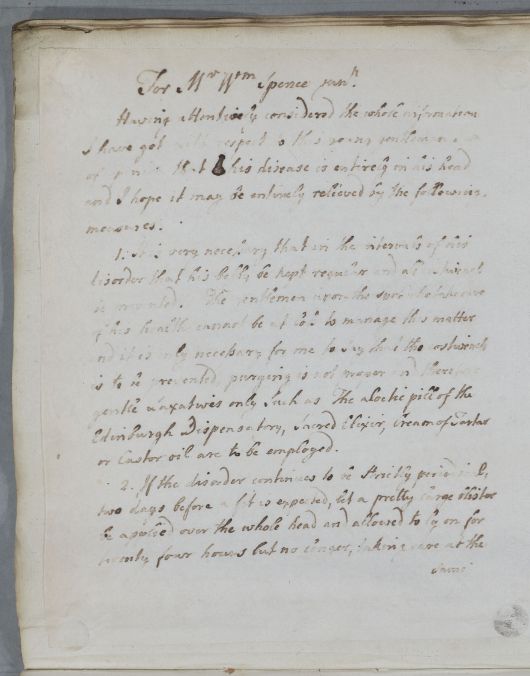 For Mr Wm Spence junr.
Having attentively considered the whole information
I have got with respect to this young gentleman
of that his disease is entirely in his head
and I hope it may be entirely relieved by the following
measures.
1. It is very necessary that in the intervals of his
disorder that his belly be kept regular and all costiveness
be prevented. The gentlemen upon the
of his health cannot be at loss to manage this matter
and it is only necessary for me to say that tho costiveness
is to be prevented, purging is not proper and therefore
gentle laxatives only such as The aloetic pill of the
Edinburgh Dispensatory, Sacred Elixir, Cream of Tartar
or Castor oil are to be employed.
2. If the disorder continues to be strictly periodical,
two days before a fit is expected, let a pretty large blister
be applied over the whole head and allowed to ly on for
twenty four hours but no longer, taking care at the
same